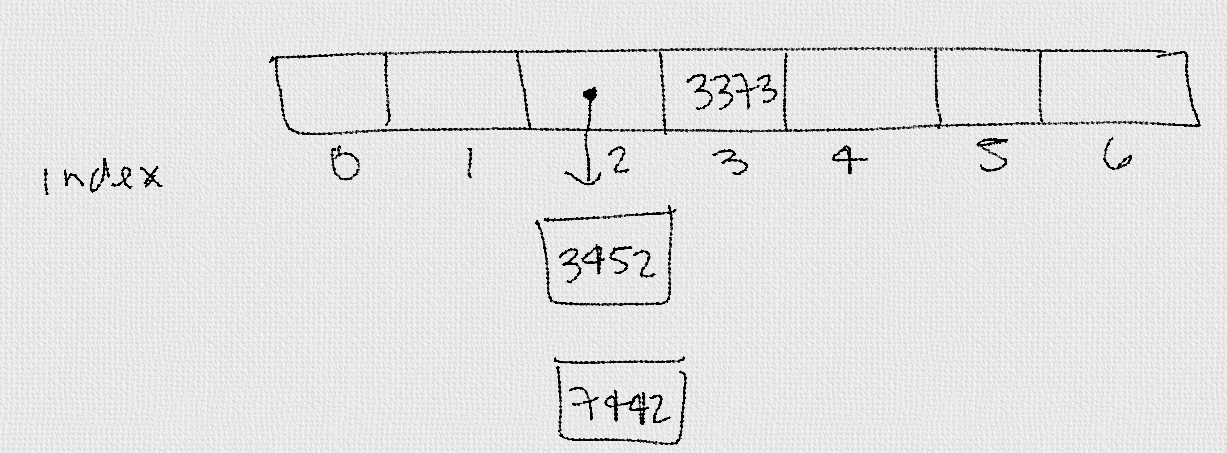 3373
index 0 1 2 3 4 5 6
3452
7442